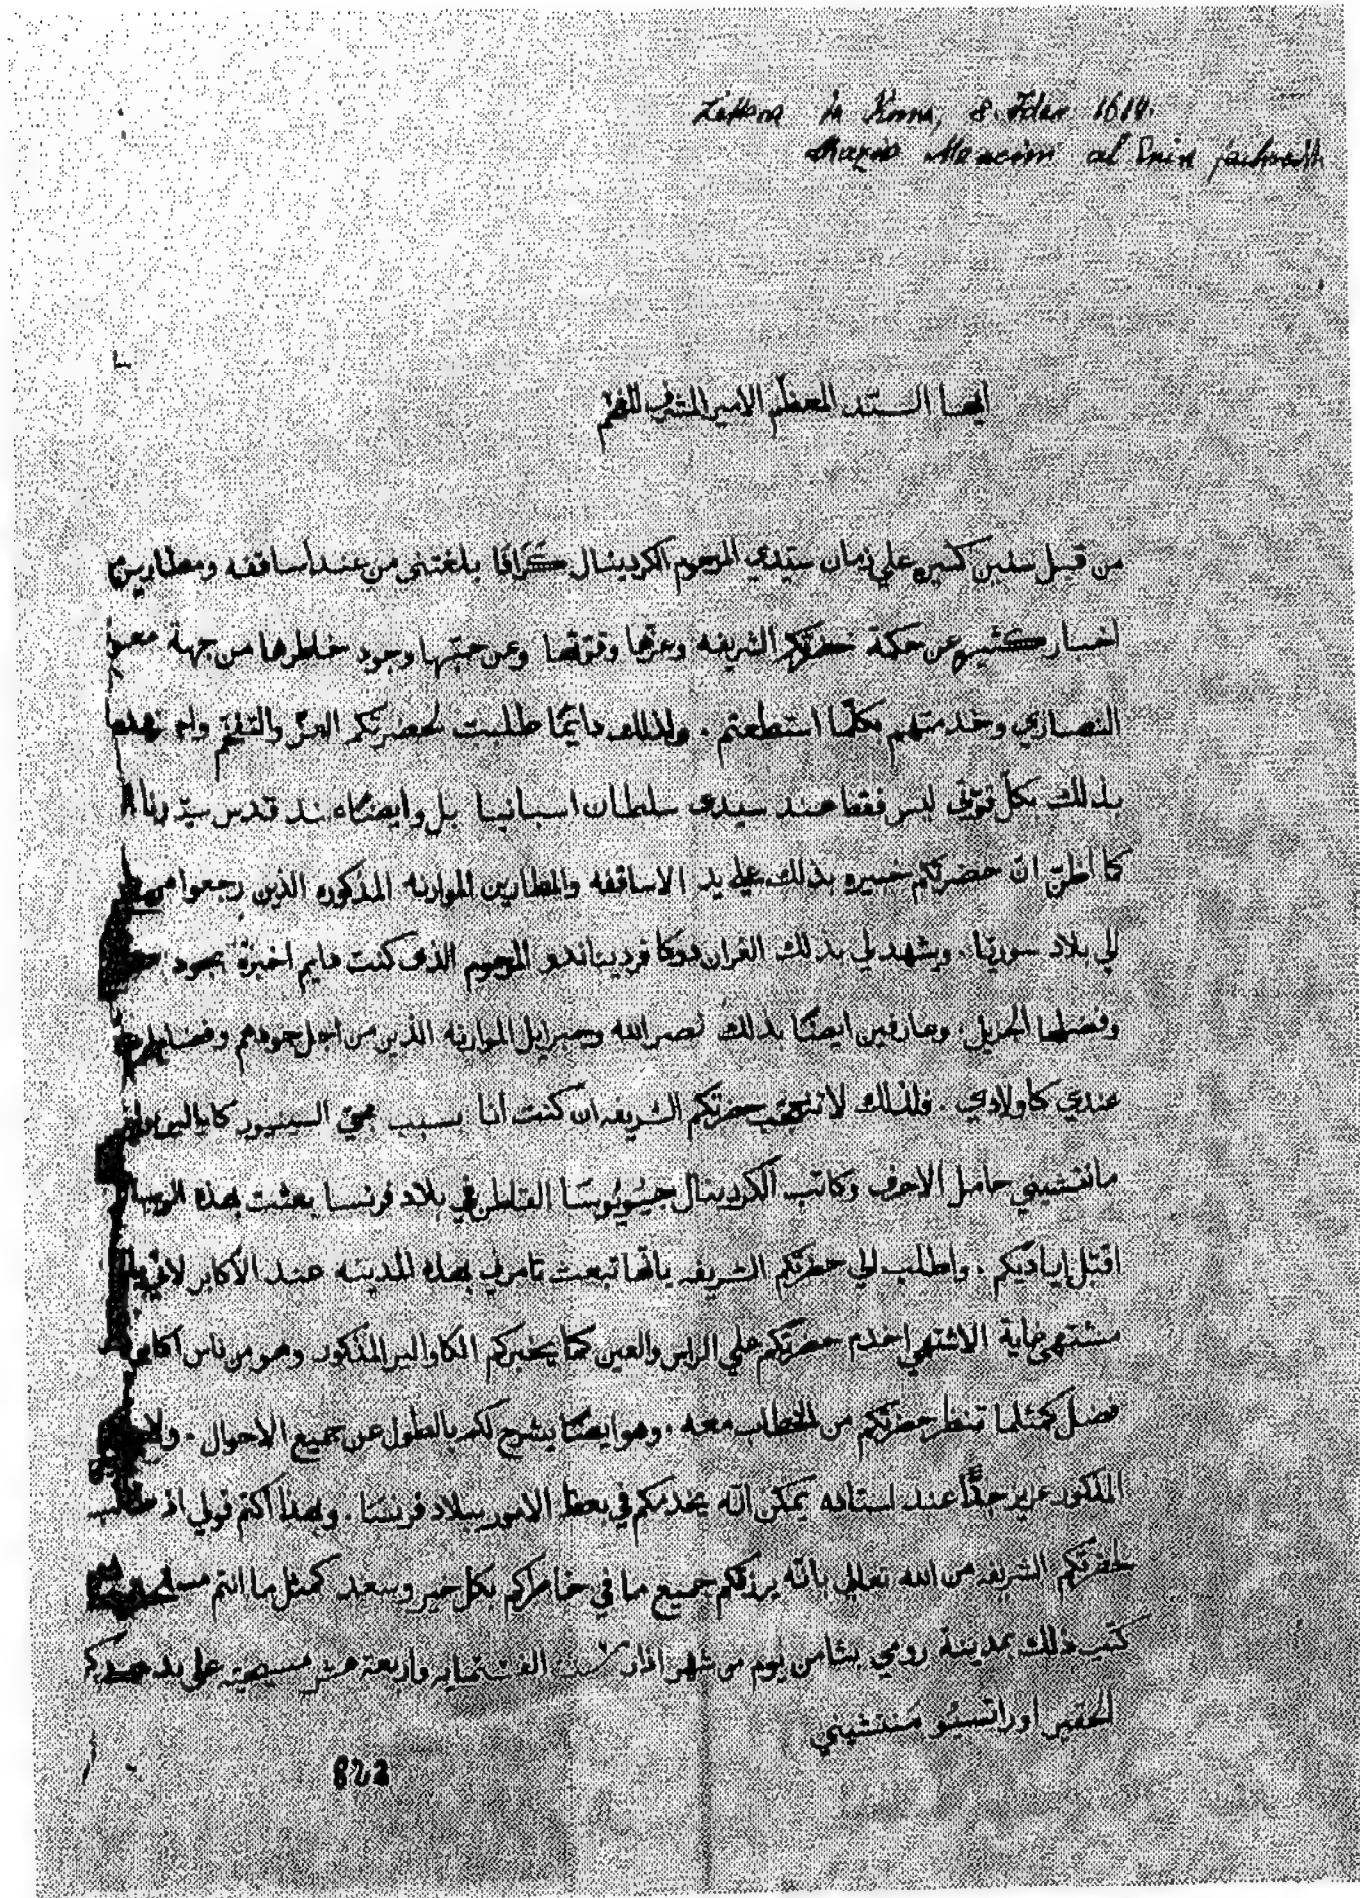 8. 1614.
ايها السيد المعظم الامير المشرف المفخم
من قبل سنين كثيره علي زمان سيدي المرحوم الكردينال كرافا بلغتني من عند أساقفه ومطارين
اخبار كثيره عن حكمة حضرتكم الشريفه وعزها وقوتها وعن محبتها وجود خاطرها من جهة
النصاري وخدمتهم بكلما استطعتم . ولذلك دايمًا طلبت لحضرتكم العزّ والتفخم
بذلك بكل قوتي ليس فقط عند سيدي سلطان اسبانيا بل وايضًا عند قدس سيّدنا
كما أظنّ انّ حضرتكم خبيره بذلك علي يد الاساقفه والمطارين الموارنه المذكوره الذين رجعوا من
لي بلاد سوريا . ويشهد لي بذلك القران دوكا فرديناندو المرحوم الذي كنت دايم اخبره بجود
وفضلها الجزيل . وعارفين ايضًا بذلك نصر الله وجبرايل الموارنه الذين من اجل جودهم
عندي كاولادي . فلذلك لا تتعجب حضرتكم الشريفه ان كنت أنا بسبب مجيّ السينيور كاوالير
مانتشيني حامل الاحرف وكاتب الكردينال جيويوسا القاطن في بلاد فرنسا بعثت بهذه
اقبّل إياديكم . واطلب الي حضرتكم الشريفه بانّها تبعث تامرني بهذه المدينه عند الأكابر
مشتهي غاية الاشتهي اخدم حضرتكم علي الراس والعين كما يخبركم الكاوالير المذكور وهو من ناس اكابر
فضل كمثلما تنظر حضرتكم من الخطاب معه . وهو ايضًا يشرح لكم بالطول عن جميع الاحوال .
المذكور عزيز جدًّا عند استاده يمكن انّه يخدمكم في بعظ الامور ببلاد فرنسا . وبهذا اكتم قولي اذ
لحضرتكم الشريفه من الله تعالى بانّه يرزقكم جميع ما في خاطركم بكل خير وسعد كمثل ما انتم
كتب ذلك بمدينة رومي بثامن يوم من شهر اذار سنة الف ستمايه واربعة عشر مسيحيه علي يد عبدكم
الحقير اوراتسيو منتشيني
828